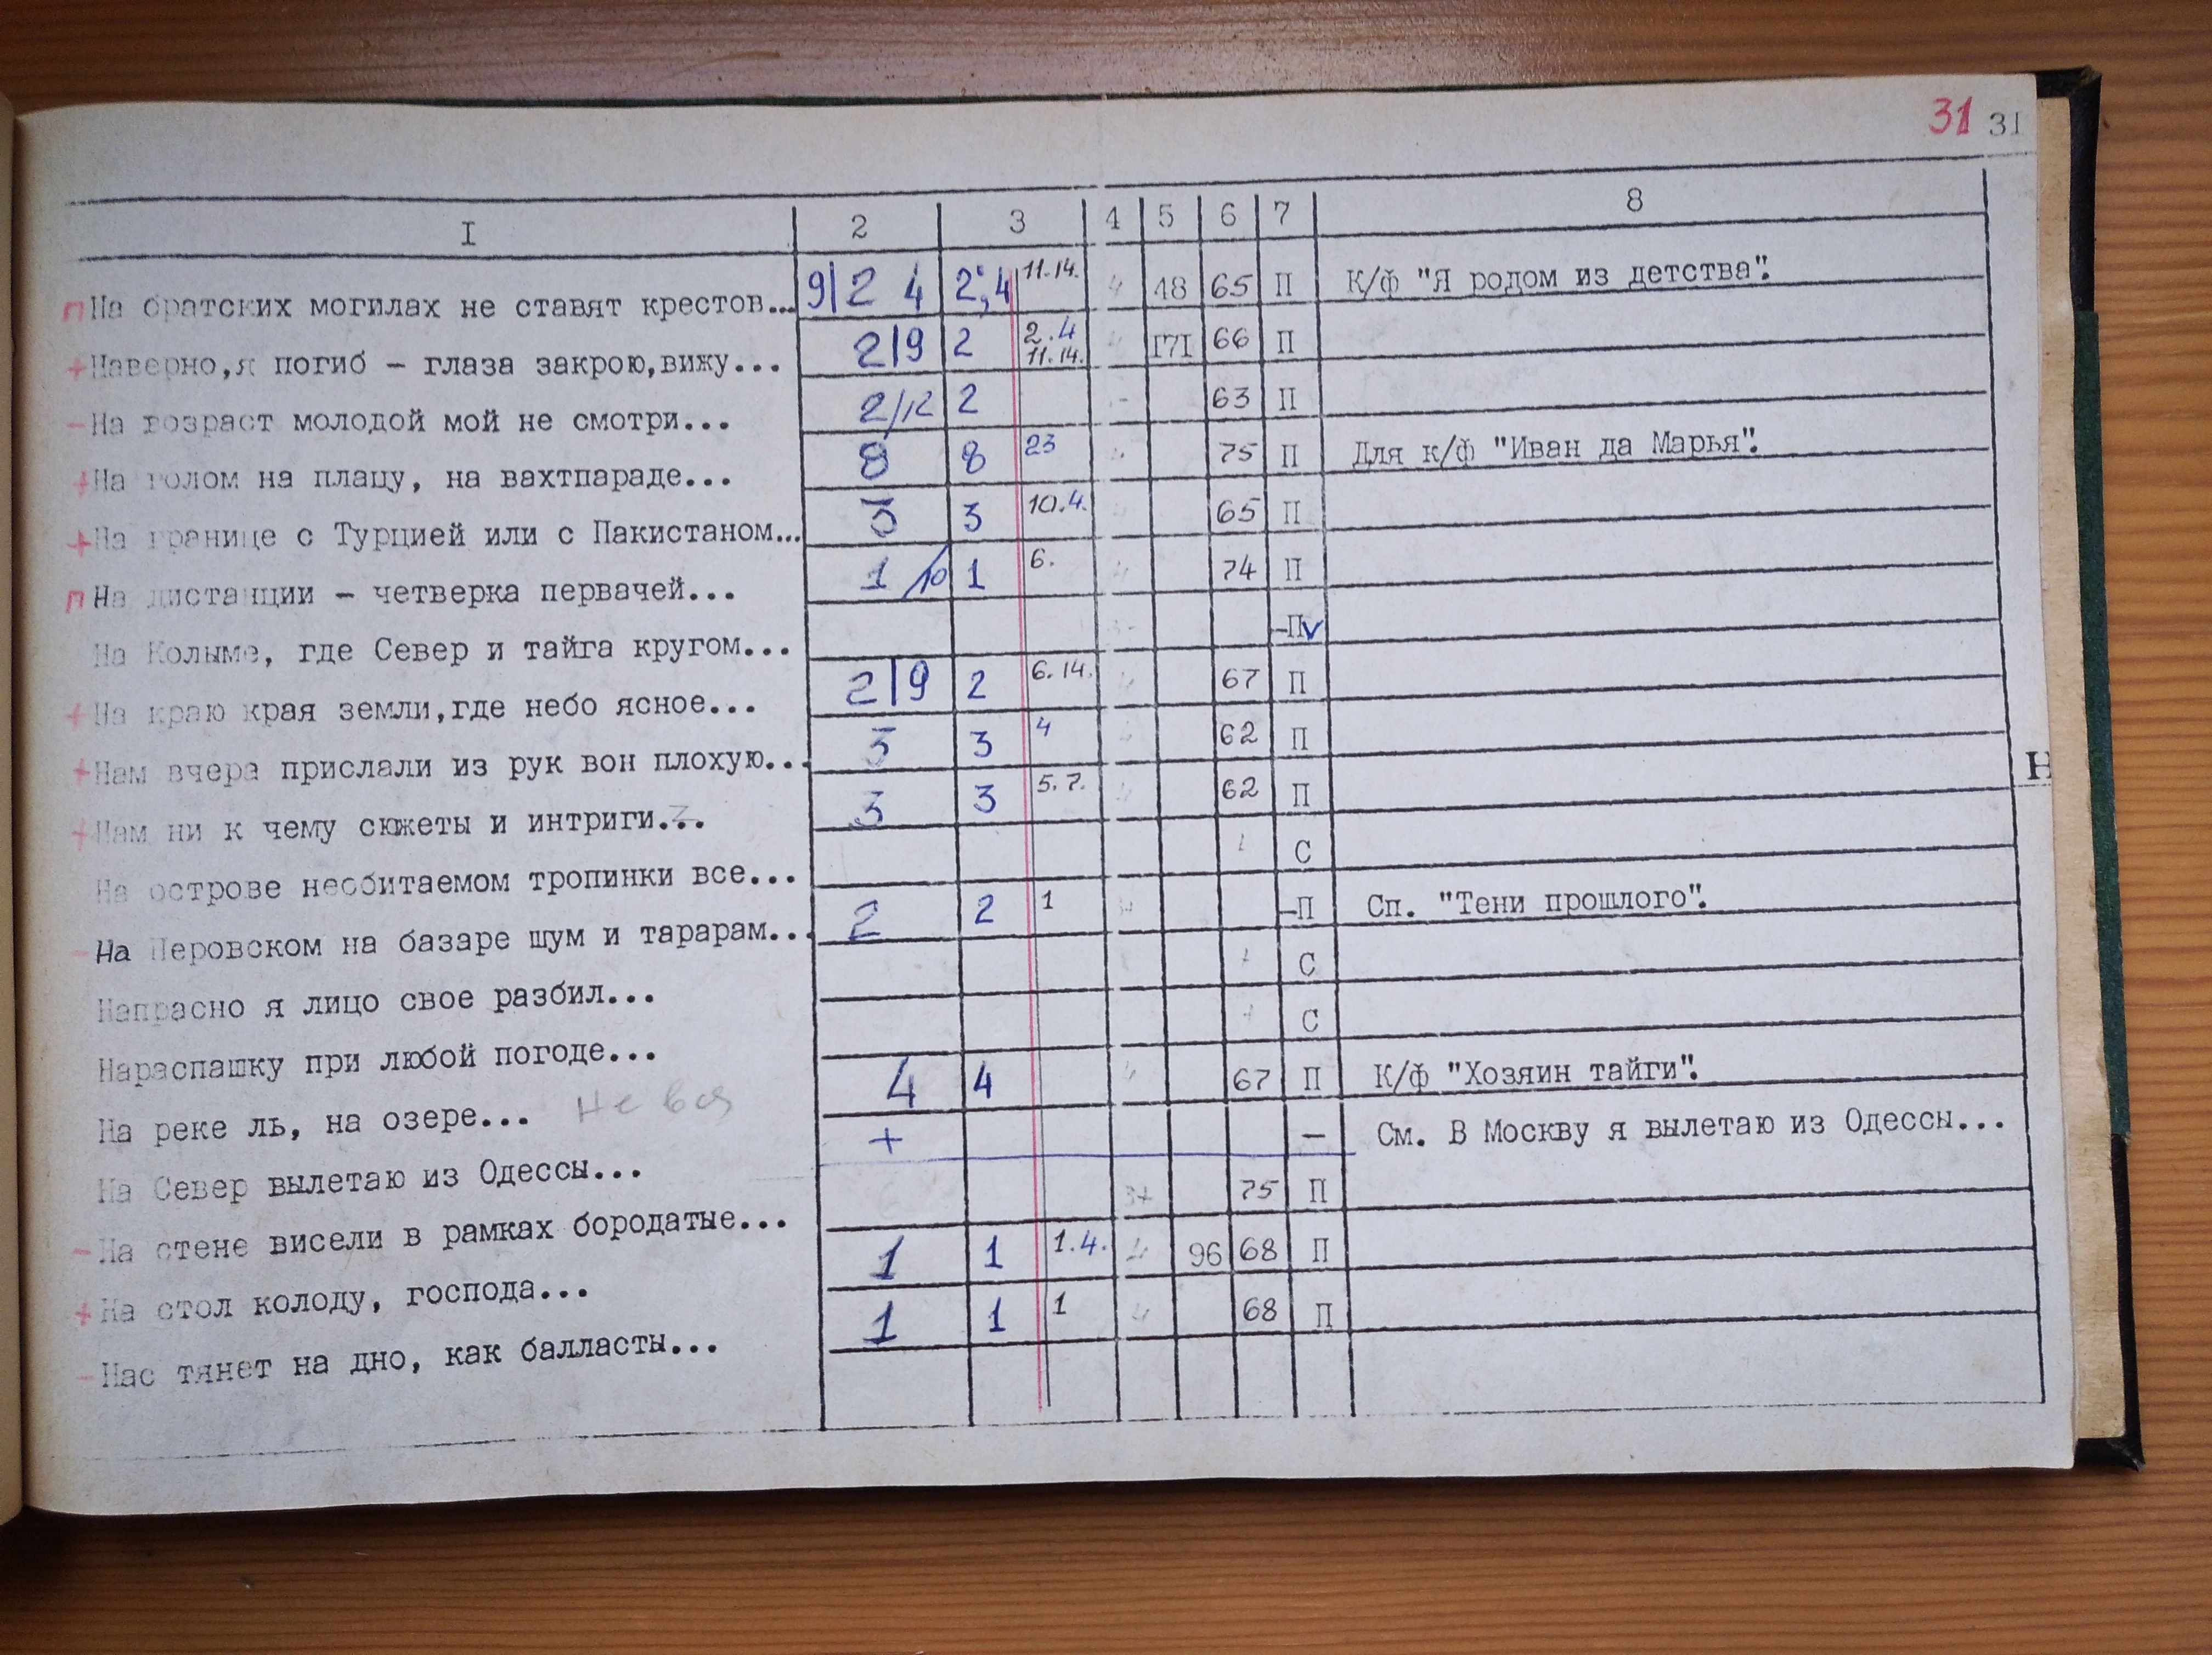 31 31
I 2 3 4 5 6 7 8
п На братских могилах не ставят крестов... 9| 2 4 2; 4 11.14. 4 48 65 П К/ф "Я родом из детства".
+ Наверно,я погиб – глаза закрою,вижу... 2|9 2 2.4 11.14. 4 I7I 66 П
- На возраст молодой мой не смотри... 2/12 2 - 63 П
+ На голом на плацу, на вахтпараде... 8 8 23 75 П Для к/ф "Иван да Марья".
+ На границе с Турцией или с Пакистаном... 3 3 10.4. 65 П
п На дистанции – четверка первачей... 1/10 1 6. 4 74 П
На Колыме, где Север и тайга кругом... -П v
+ На краю края земли,где небо ясное... 2|9 2 6.14. 4 67 П
+ Нам вчера прислали из рук вон плохую... 3 3 4 62 П
+ Нам ни к чему сюжеты и интриги... 3 3 5.7. 4 62 П
На острове необитаемом тропинки все... С
- На Перовском на базаре шум и тарарам... 2 2 1 -П Сп. "Тени прошлого".
Напрасно я лицо свое разбил... С
Нараспашку при любой погоде... С
На реке ль, на озере... Не вся 4 4 4 67 П К/ф "Хозяин тайги".
На Север вылетаю из Одессы... + – См. В Москву я вылетаю из Одессы...
- На стене висели в рамках бородатые... 75 П
+ На стол колоду, господа... 1 1 1.4. 4 96 68 П
- Нас тянет на дно, как балласты... 1 1 1 4 68 П
Н